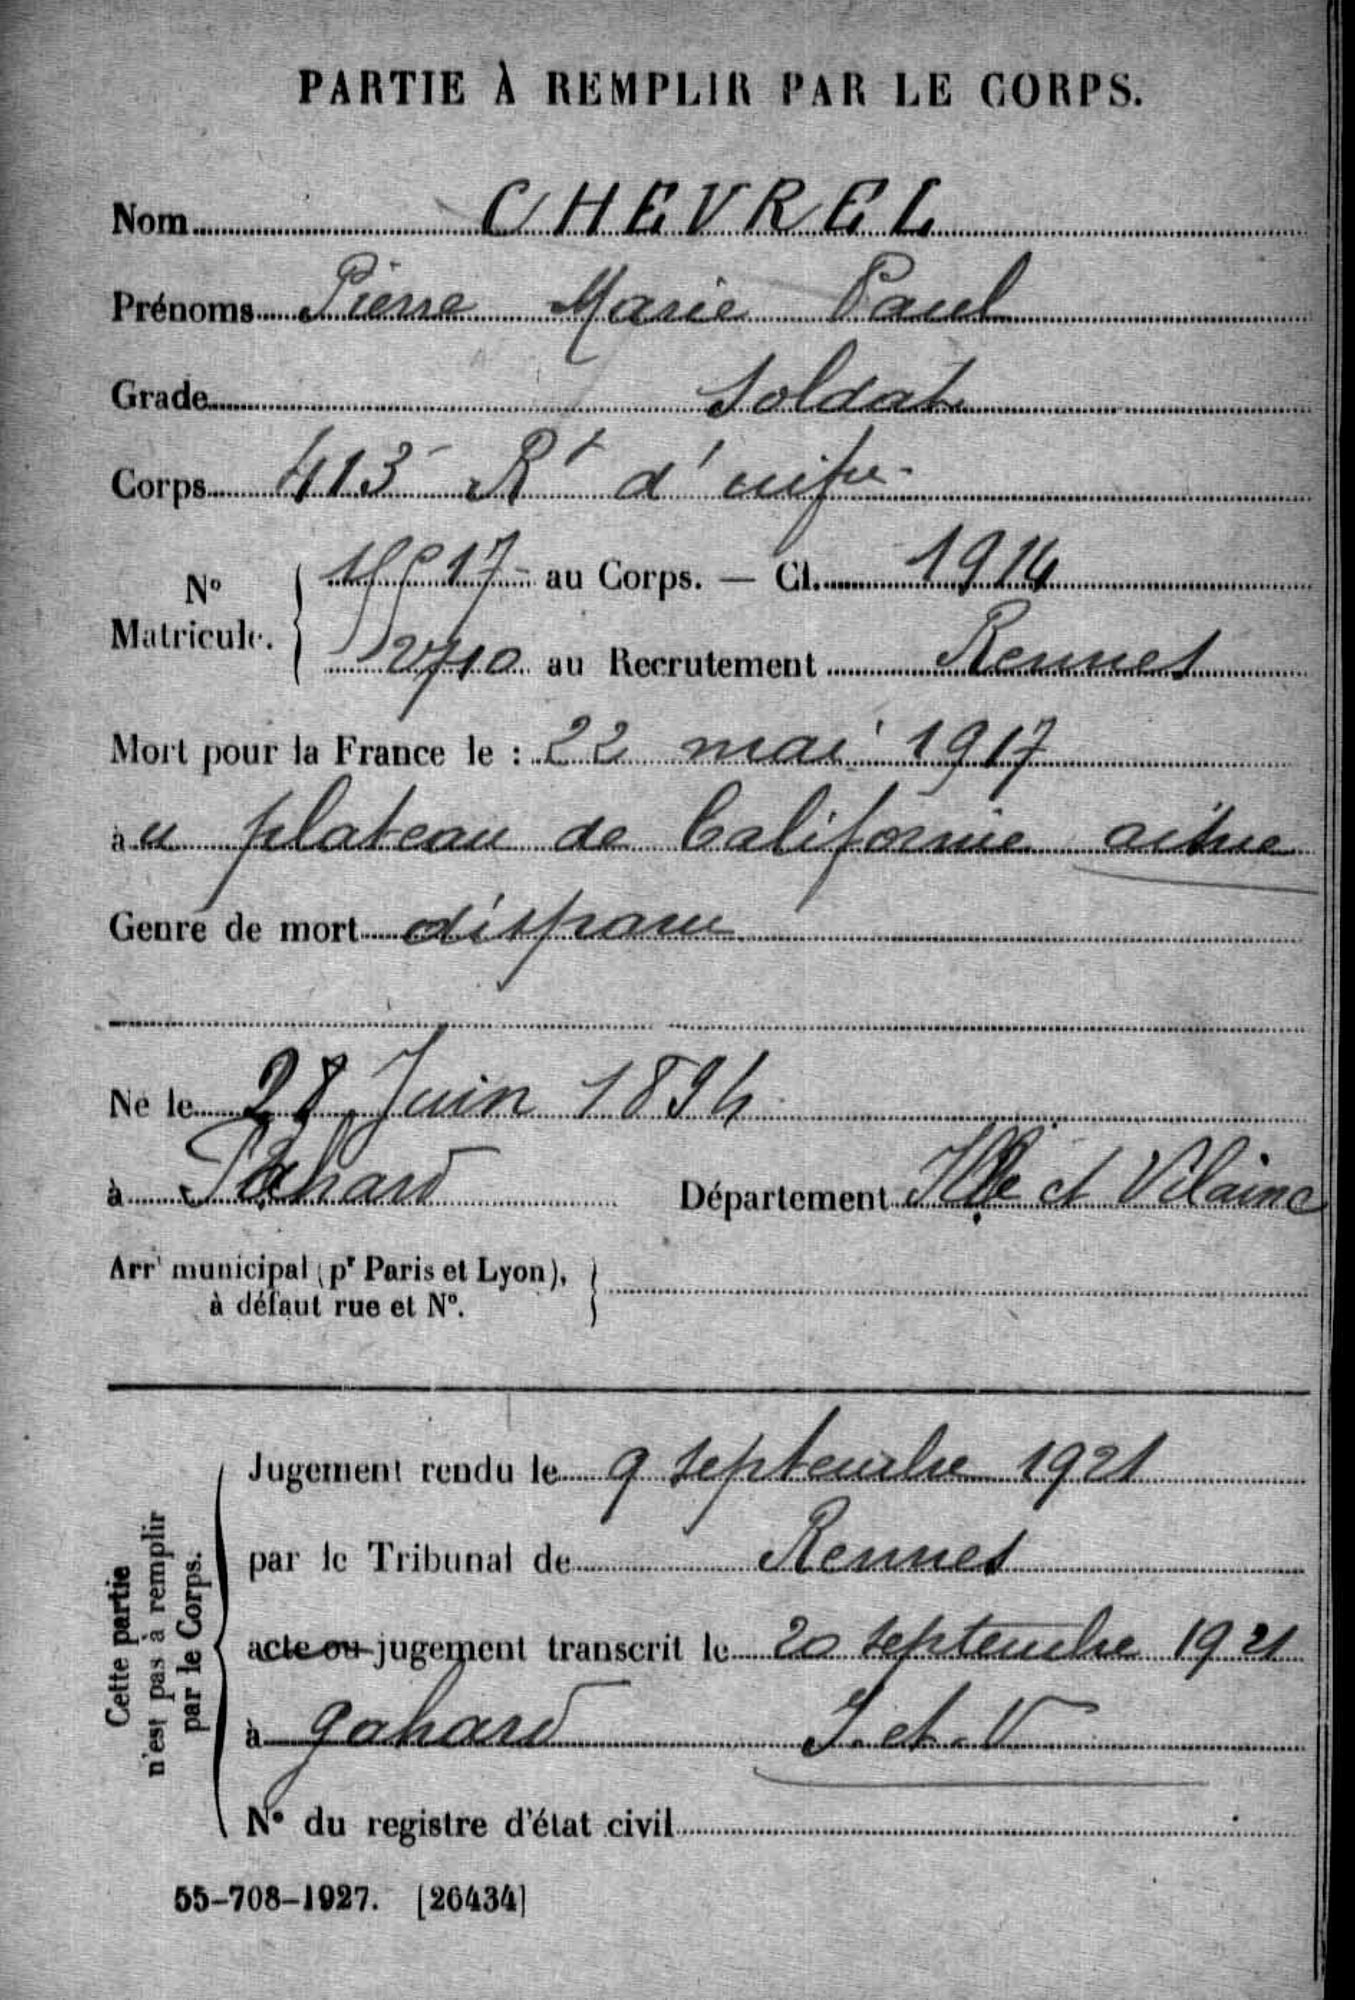 PARTIE À REMPLIR PAR LE CORPS.
Nom CHEVREL
Prénoms Pierre Marie Paul
Grade Soldat
Corps 413 Rt d'infie
No Matricule. 17 au Corps. — Cl. 1914
2710 au Recrutement Rennes
Mort pour la France le : 22 mai 1917
à u plateau de Californie aisne
Genre de mort disparu
Né le 28 Juin 1894
à Gahard Département Ille et Vilaine
Arrt municipal (pr Paris et Lyon),
à défaut rue et No.
Cette partie
n'est pas à remplir
par le Corps.
Jugement rendu le 9 septembre 1921
par le Tribunal de Rennes
acte ou jugement transcrit le 20 septembre 1921
à gahard I. et. V
No du registre d'état civil
55-708-1927. [26434]